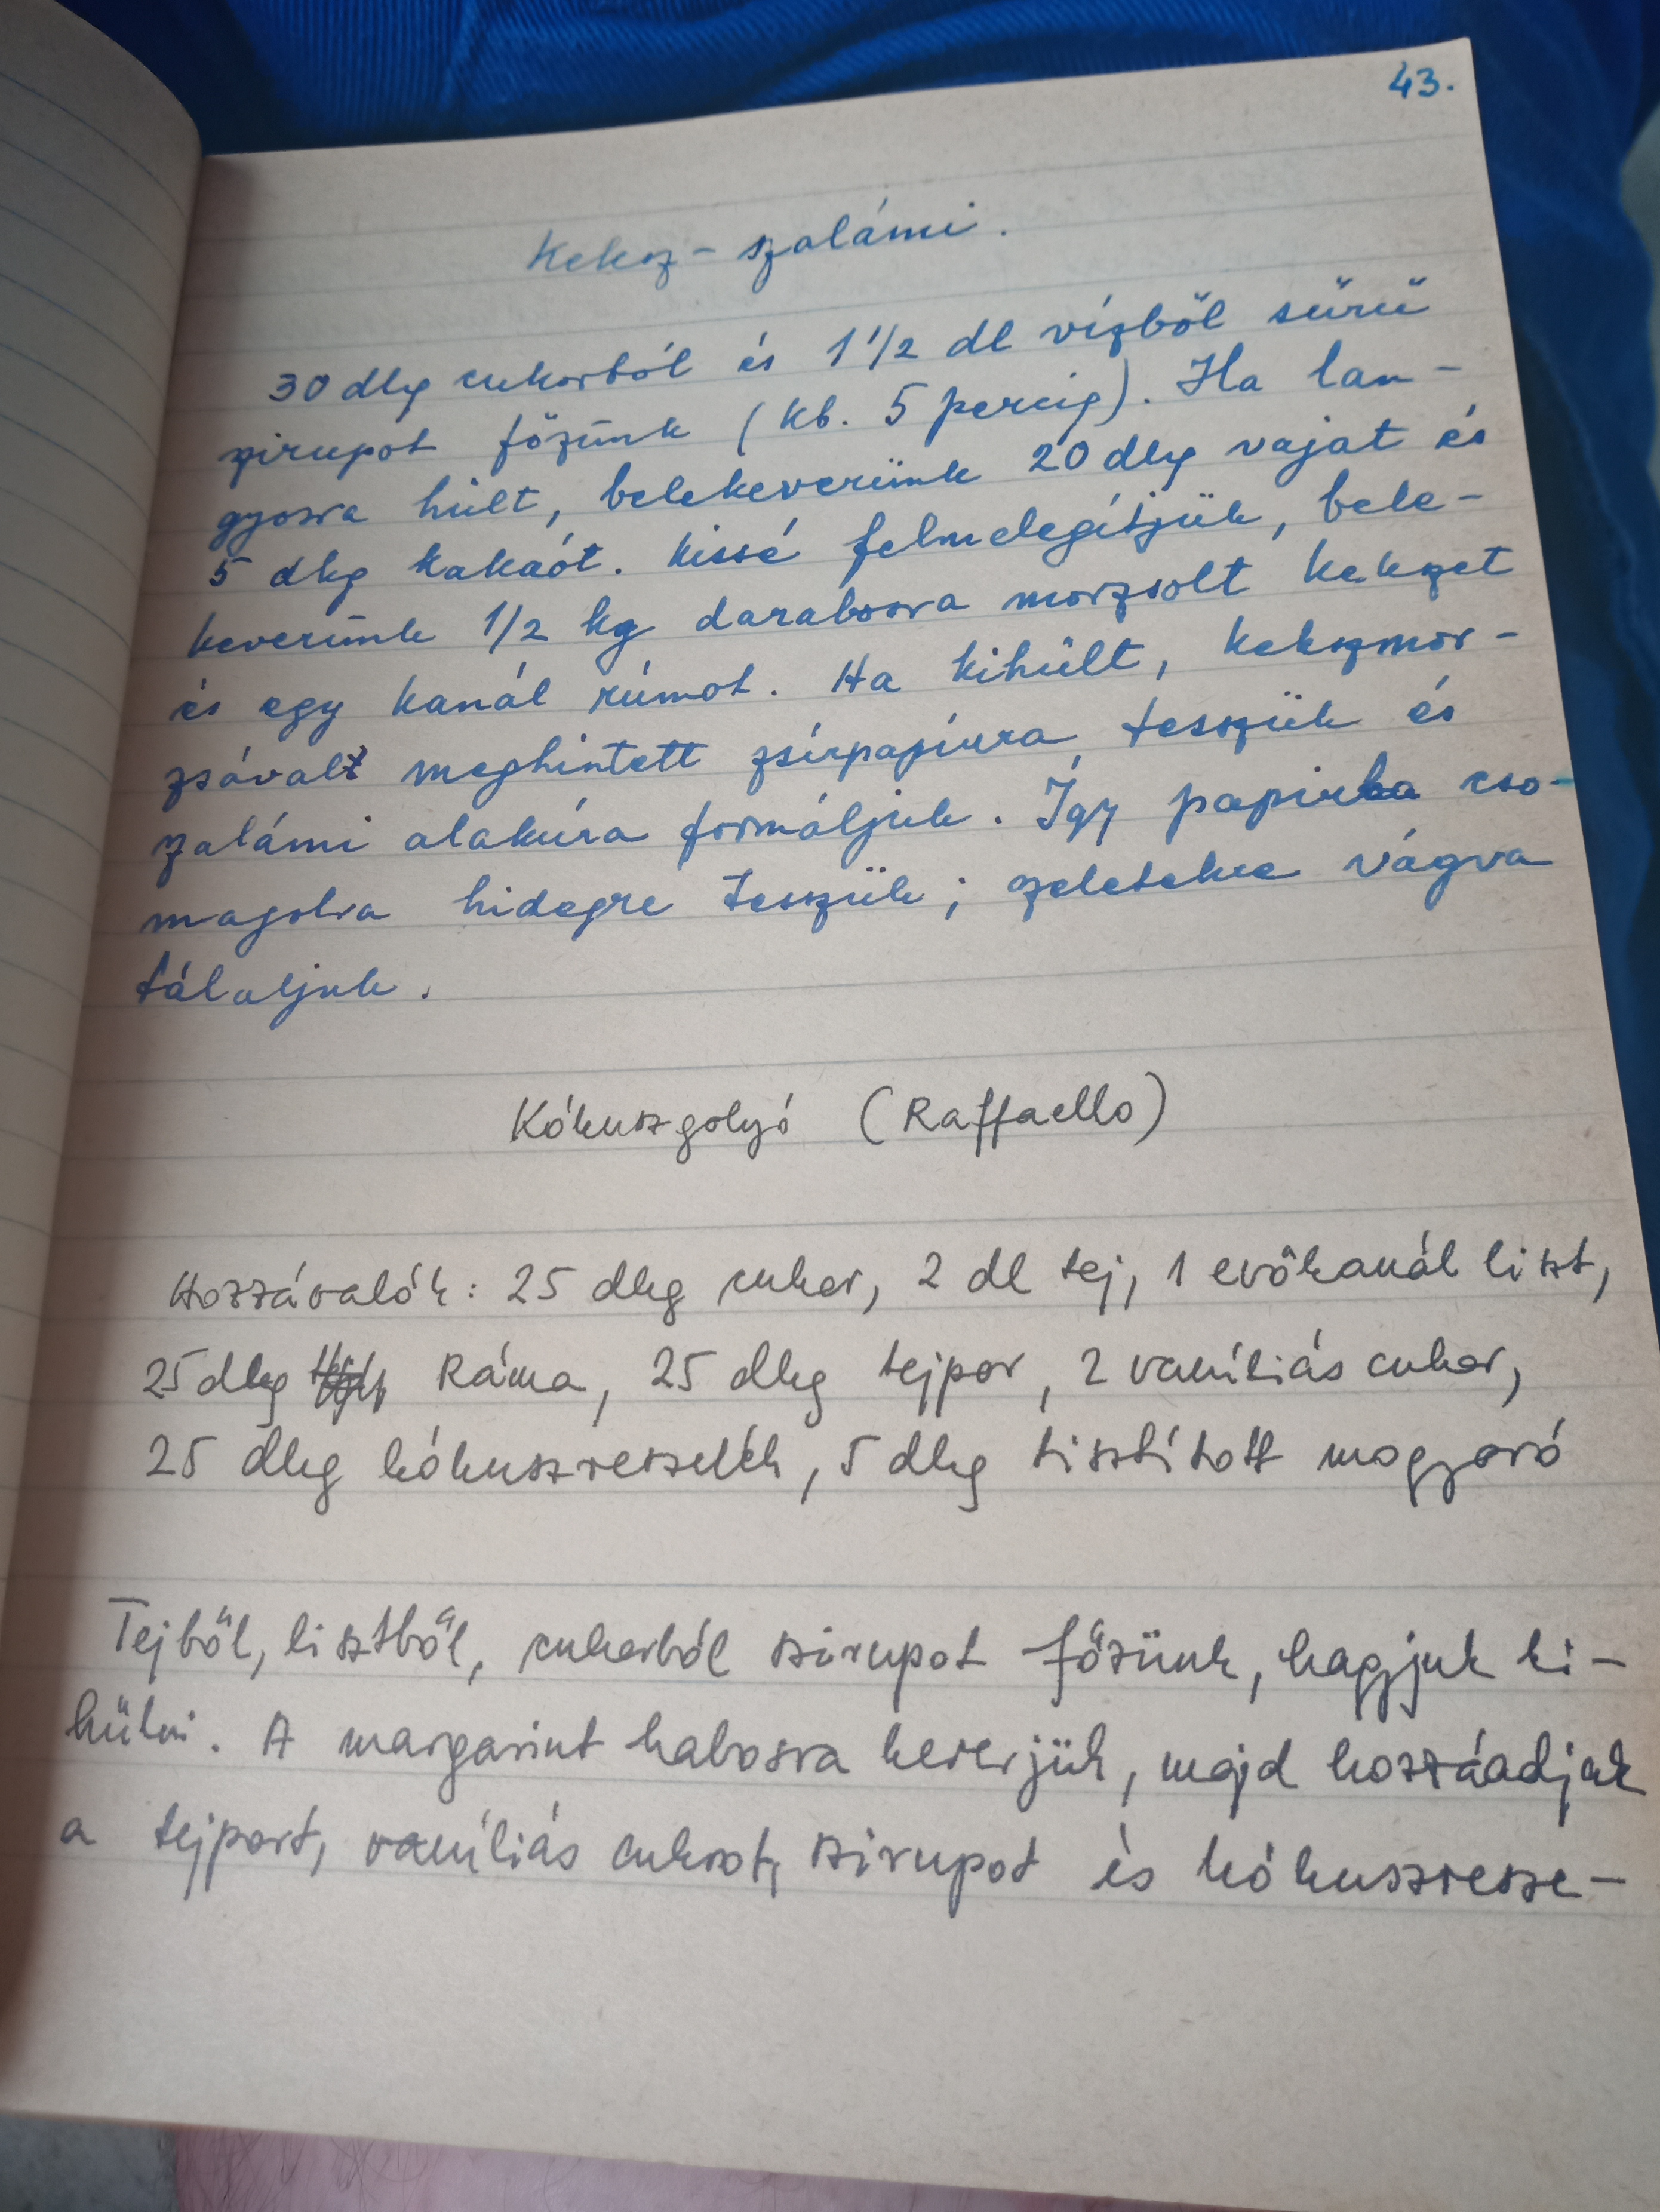 43.
Keksz-szalámi.
30 dkg cukorból és 1 1/2 dl vízből sűrű
szirupot főzünk (kb. 5 percig). Ha lan-
gyosra hűlt, belekeverünk 20 dkg vajat és
5 dkg kakaót. Kissé felmelegítjük, bele-
keverünk 1/2 kg darabosra morzsolt kekszet
és egy kanál rúmot. Ha kihült, kekszmor-
zsával meghintett zsírpapírra tesszük és
szalámi alakúra formáljuk. Így papirba cso-
magolva hidegre tesszük; szeletekre vágva
tálaljuk.
Kókuszgolyó (Raffaello)
Hozzávalók: 25 dkg cukor, 2 dl tej, 1 evőkanál liszt,
25 dkg Ráma, 25 dkg tejpor, 2 vaníliás cukor,
25 dkg kókuszreszelék, 5 dkg tisztított mogyoró
Tejből, lisztből, cukorból szirupot főzünk, hagyjuk ki-
hülni. A margarint habosra keverjük, majd hozzáadjuk
a tejport, vaníliás cukrot, szirupot és kókuszresze-